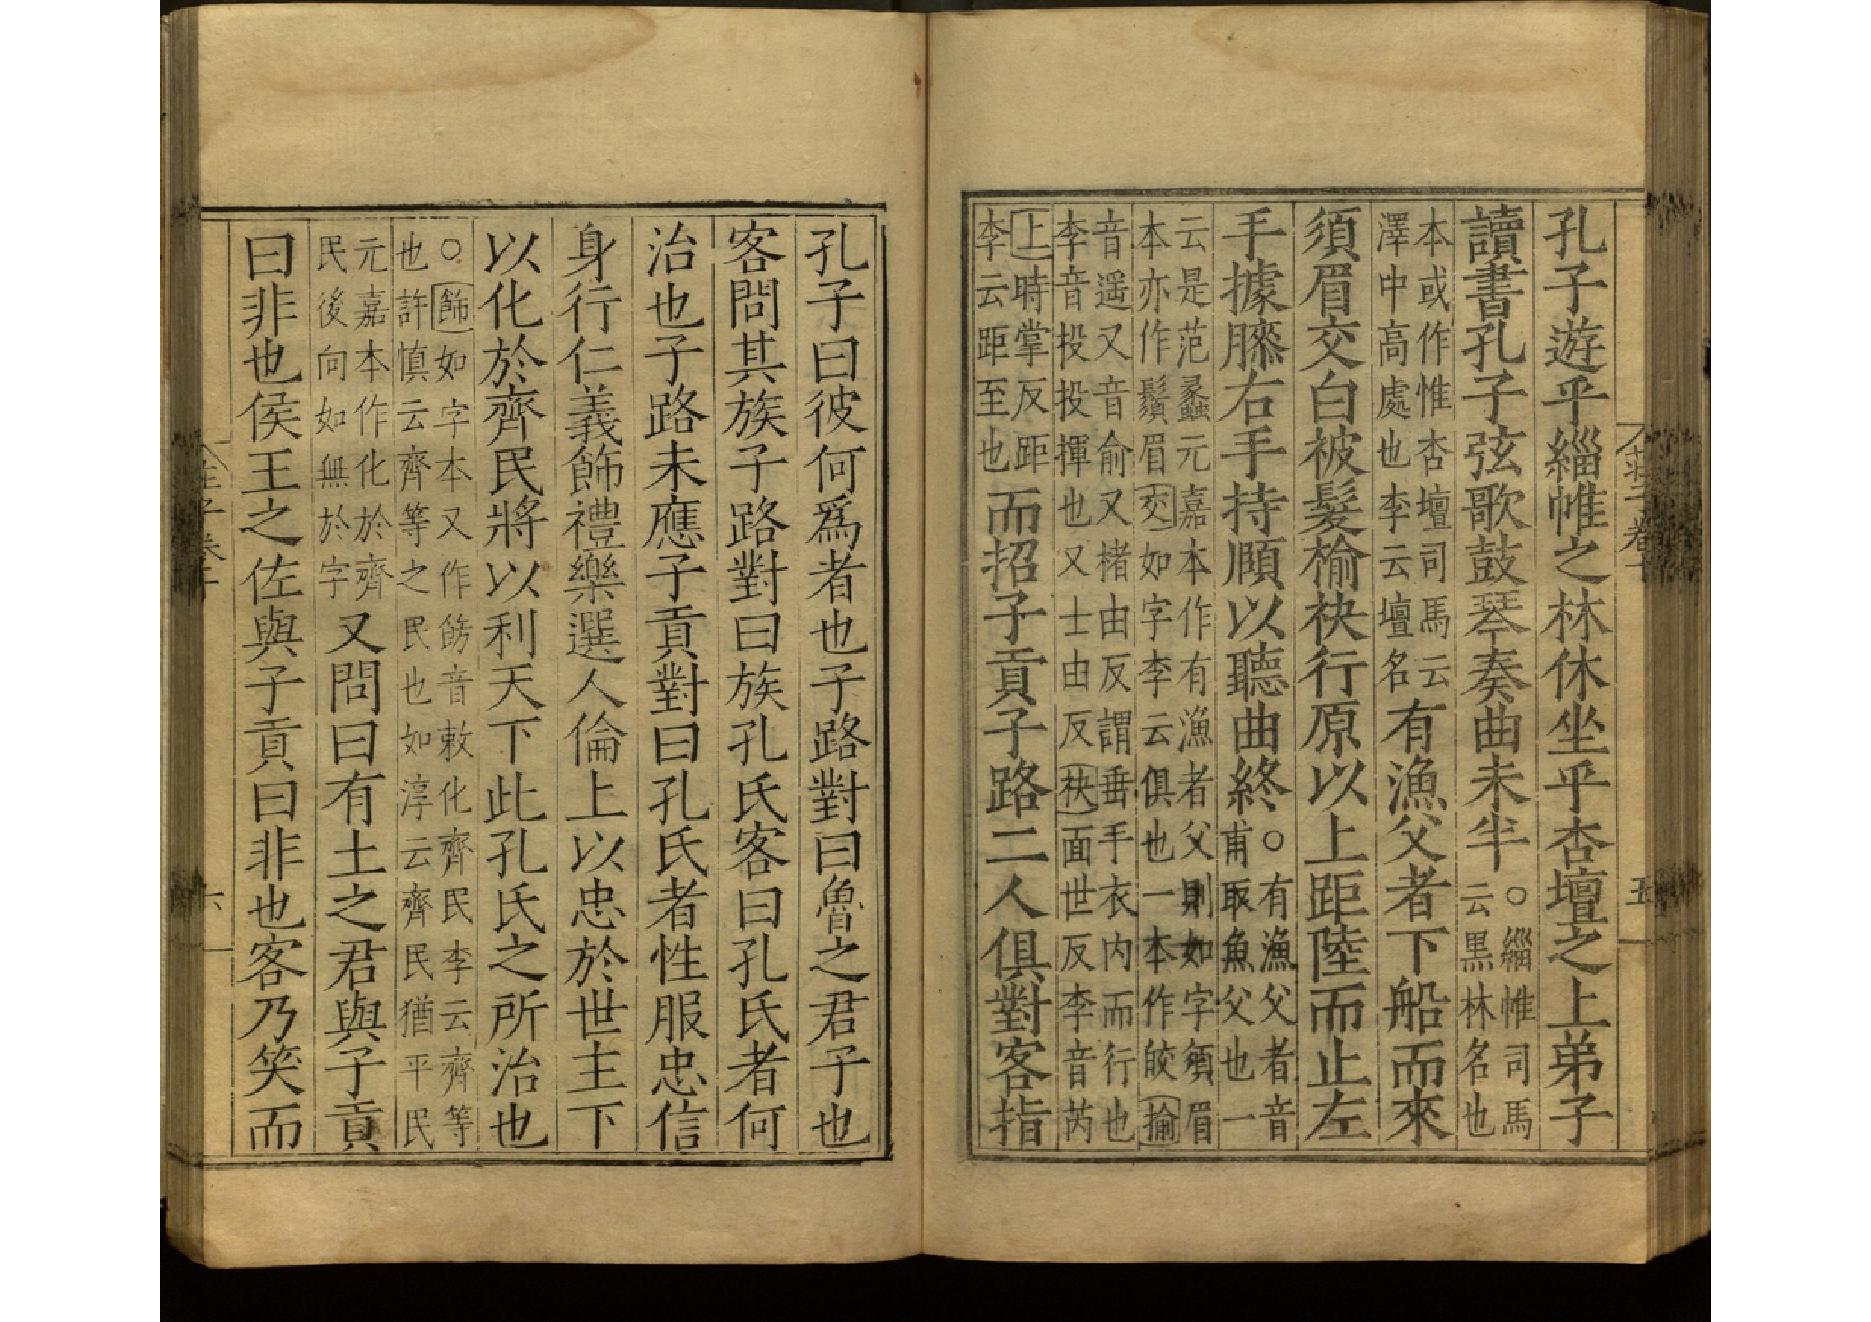 孔子遊乎緇帷之林休坐乎杏壇之上弟子
讀書孔子弦歌鼓琴奏曲未半○緇帷司馬云黒林名也
本或作惟杏壇司馬云澤中高處也李云壇名有漁父者下船而來
須眉交白被髮揄袂行原以上距陸而止左
手據膝右手持頤以聽曲終○有漁父者音甫取魚父也一
云是范蠡元嘉本作有漁者父則如字須眉本亦作鬚眉交如字李云俱也一本作皎揄
音遥又音俞又楮由反謂垂手衣内而行也李音投投揮也又士由反袂面世反李音芮
上時掌反距李云距至也而招子貢子路二人俱對客指
孔子曰彼何爲者也子路對曰魯之君子也
客問其族子路對曰族孔氏客曰孔氏者何
治也子路未應子貢對曰孔氏者性服忠信
身行仁義飾禮樂選人倫上以忠於世主下
以化於齊民將以利天下此孔氏之所治也
○飾如字本又作餝音敕化齊民李云齊等也許慎云齊等之民也如淳云齊民猶平民
元嘉本作化於齊民後向如無於字又問曰有土之君與子貢
曰非也侯王之佐與子貢曰非也客乃笑而